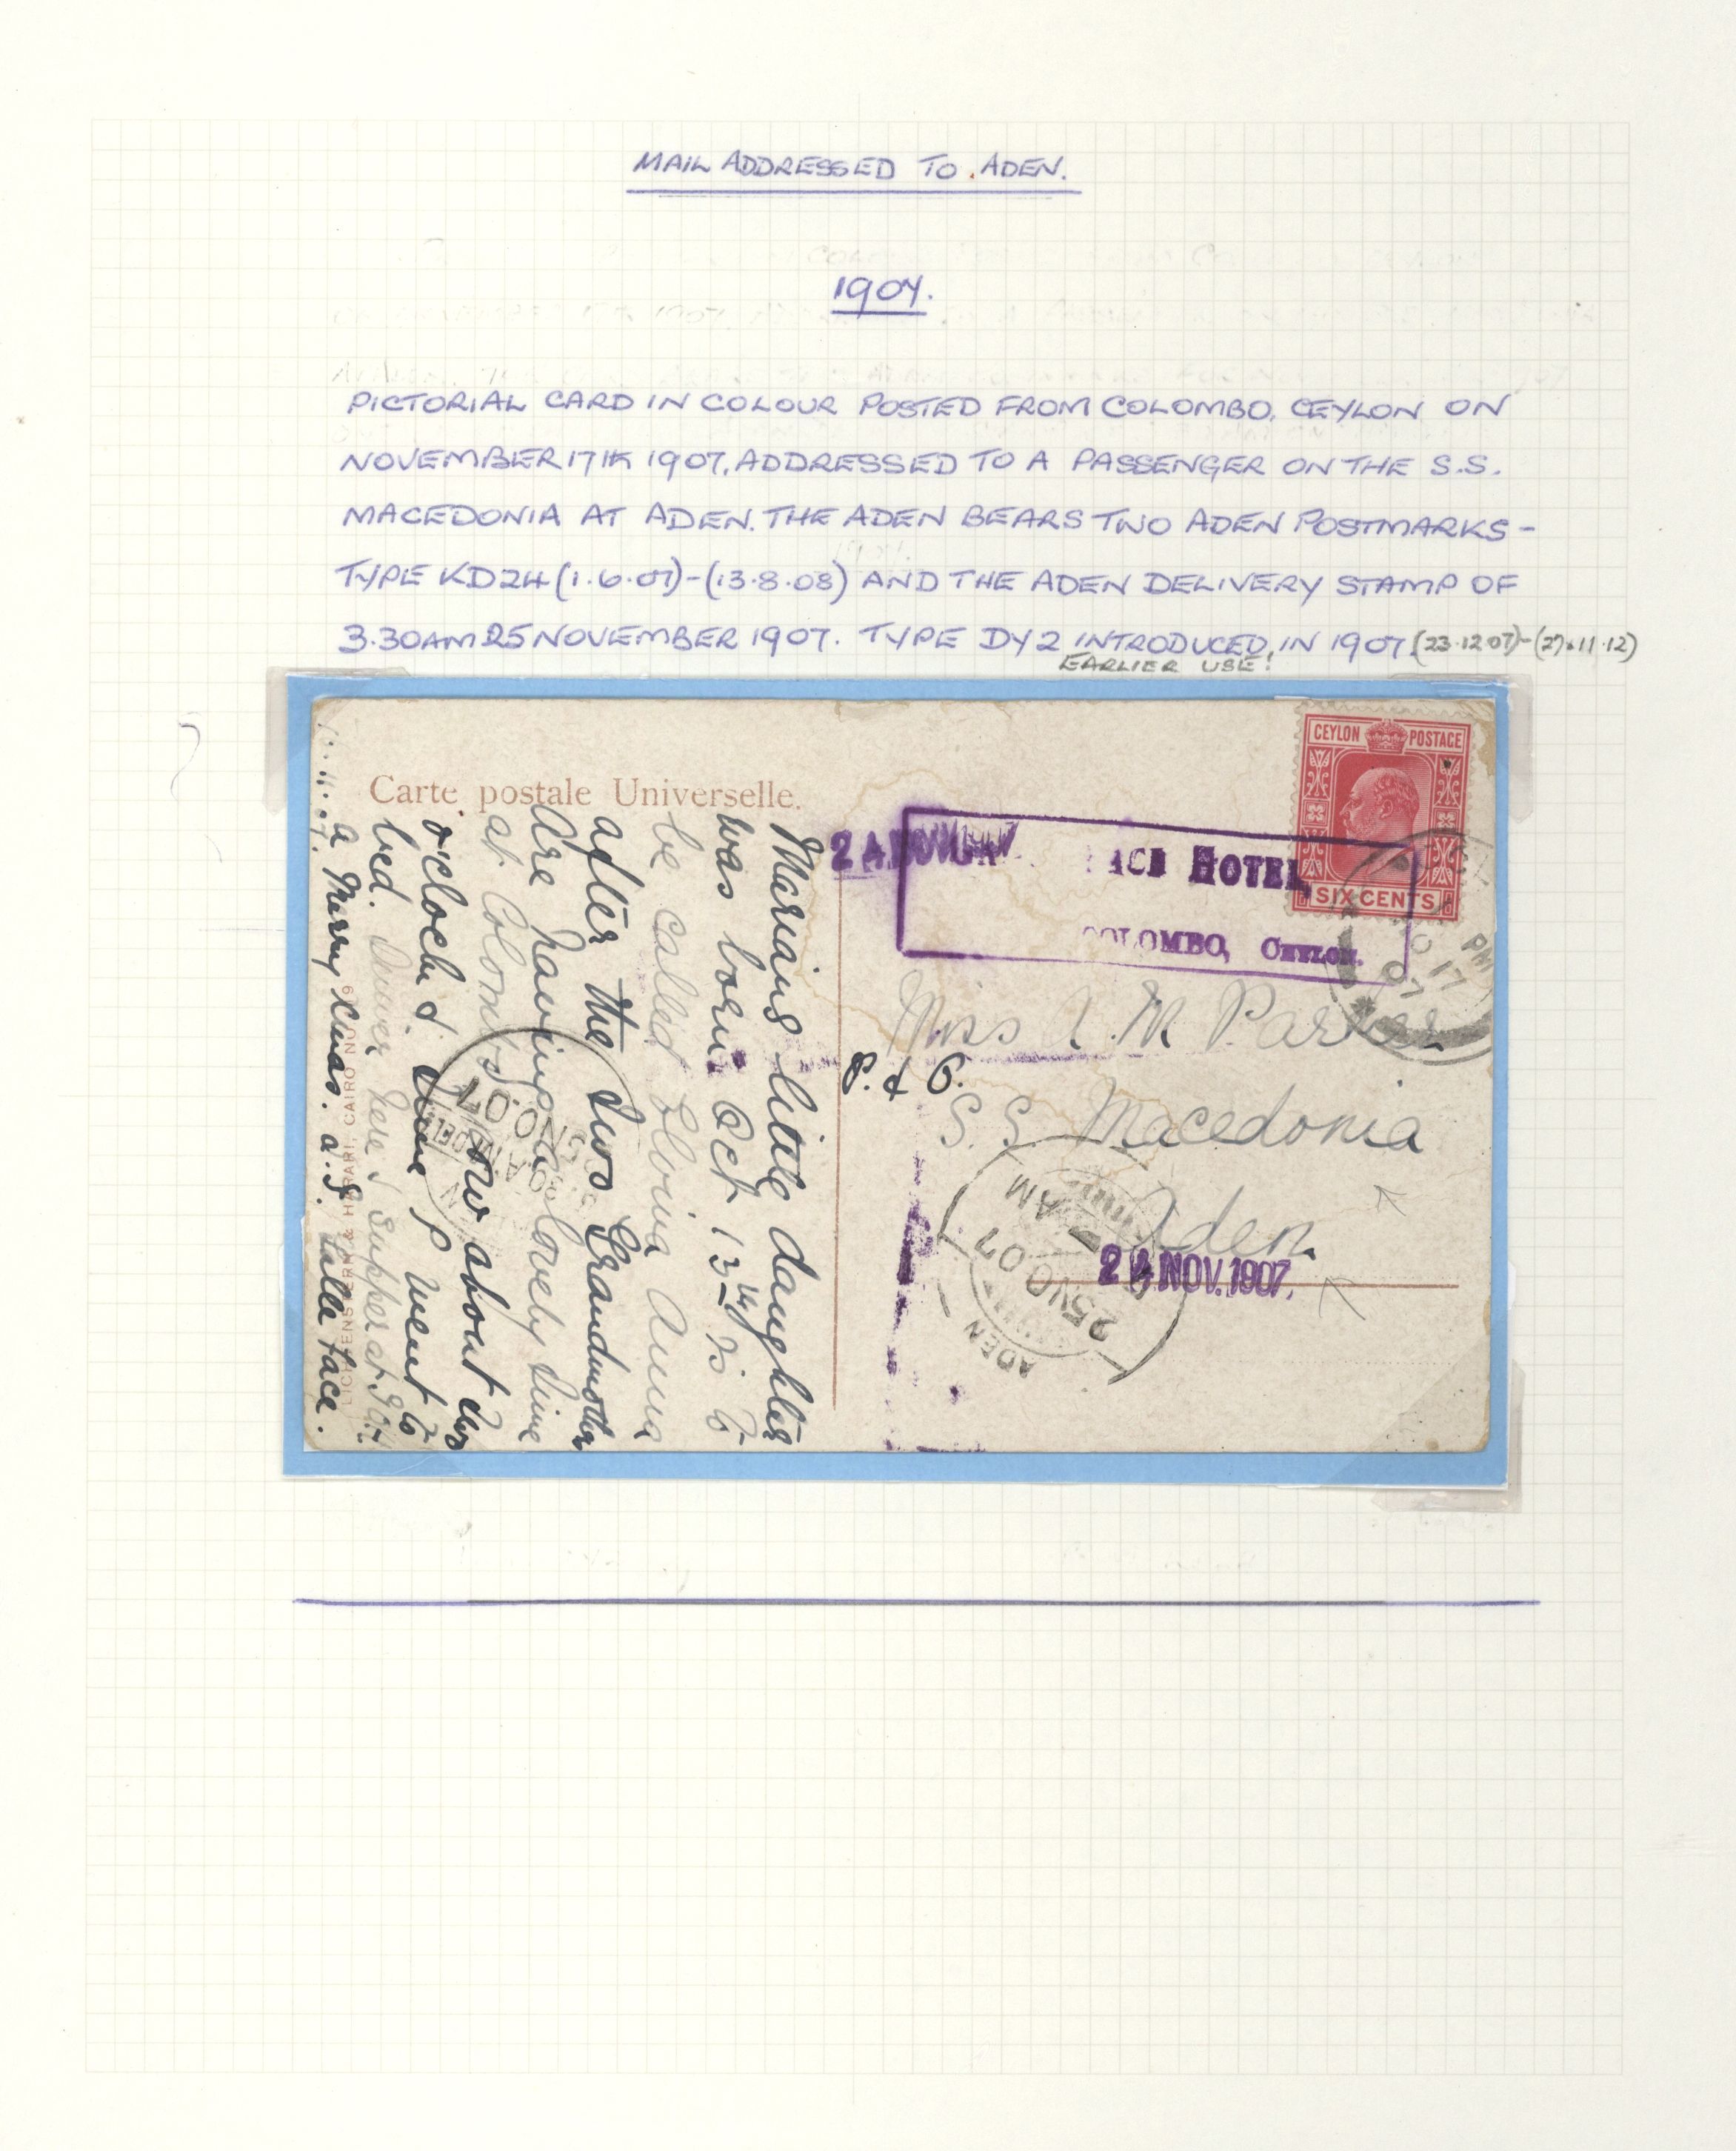 MAIL ADDRESSED TO ADEN.
1907.
PICTORIAL CARD IN COLOUR POSTED FROM COLOMBO, CEYLON ON
NOVEMBER 17TH 1907, ADDRESSED TO A PASSENGER ON THE S.S.
MACEDONIA AT ADEN. THE ADEN BEARS TWO ADEN POSTMARKS -
TYPE KD24 (1.6.07)-(13.8.08) AND THE ADEN DELIVERY STAMP OF
3.30AM 25 NOVEMBER 1907. TYPE DY2 INTRODUCED IN 1907. (23.12.07)-(27.11.12)
EARLIER USE!
Carte postale Universelle.
CEYLON POSTAGE
SIX CENTS
HOTEL,
COLOMBO, CEYLON.
PM
17
07
Miss A. M. Parker
P. & O.
S.S. Macedonia
Aden.
24 NOV. 1907.
AM
25 NO 07
ADEN
Marians little daughter
was born Oct 13th is to
be called Anna
after the two Grandmother
Are having a lovely time
at Colombo. Saw about
o'clock & went to
bed. Dinner here & Supper at
a Merry Xmas. a.S. Galle Face.
LICHTENSTERN & HARARI, CAIRO No.